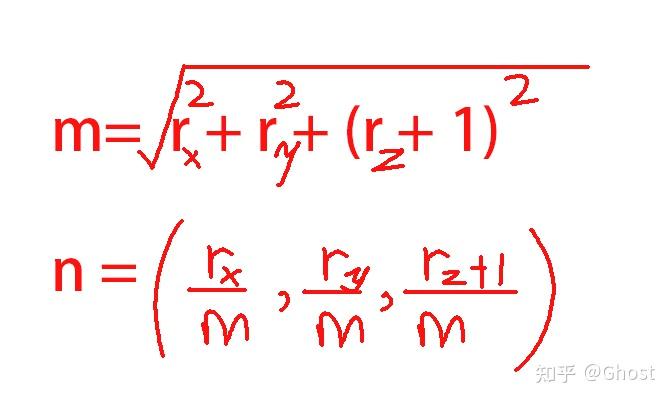 m=√(r_x^2 + r_y^2 + (r_z + 1)^2)
n = (r_x/m, r_y/m, r_z+1/m)
知乎 @Ghost